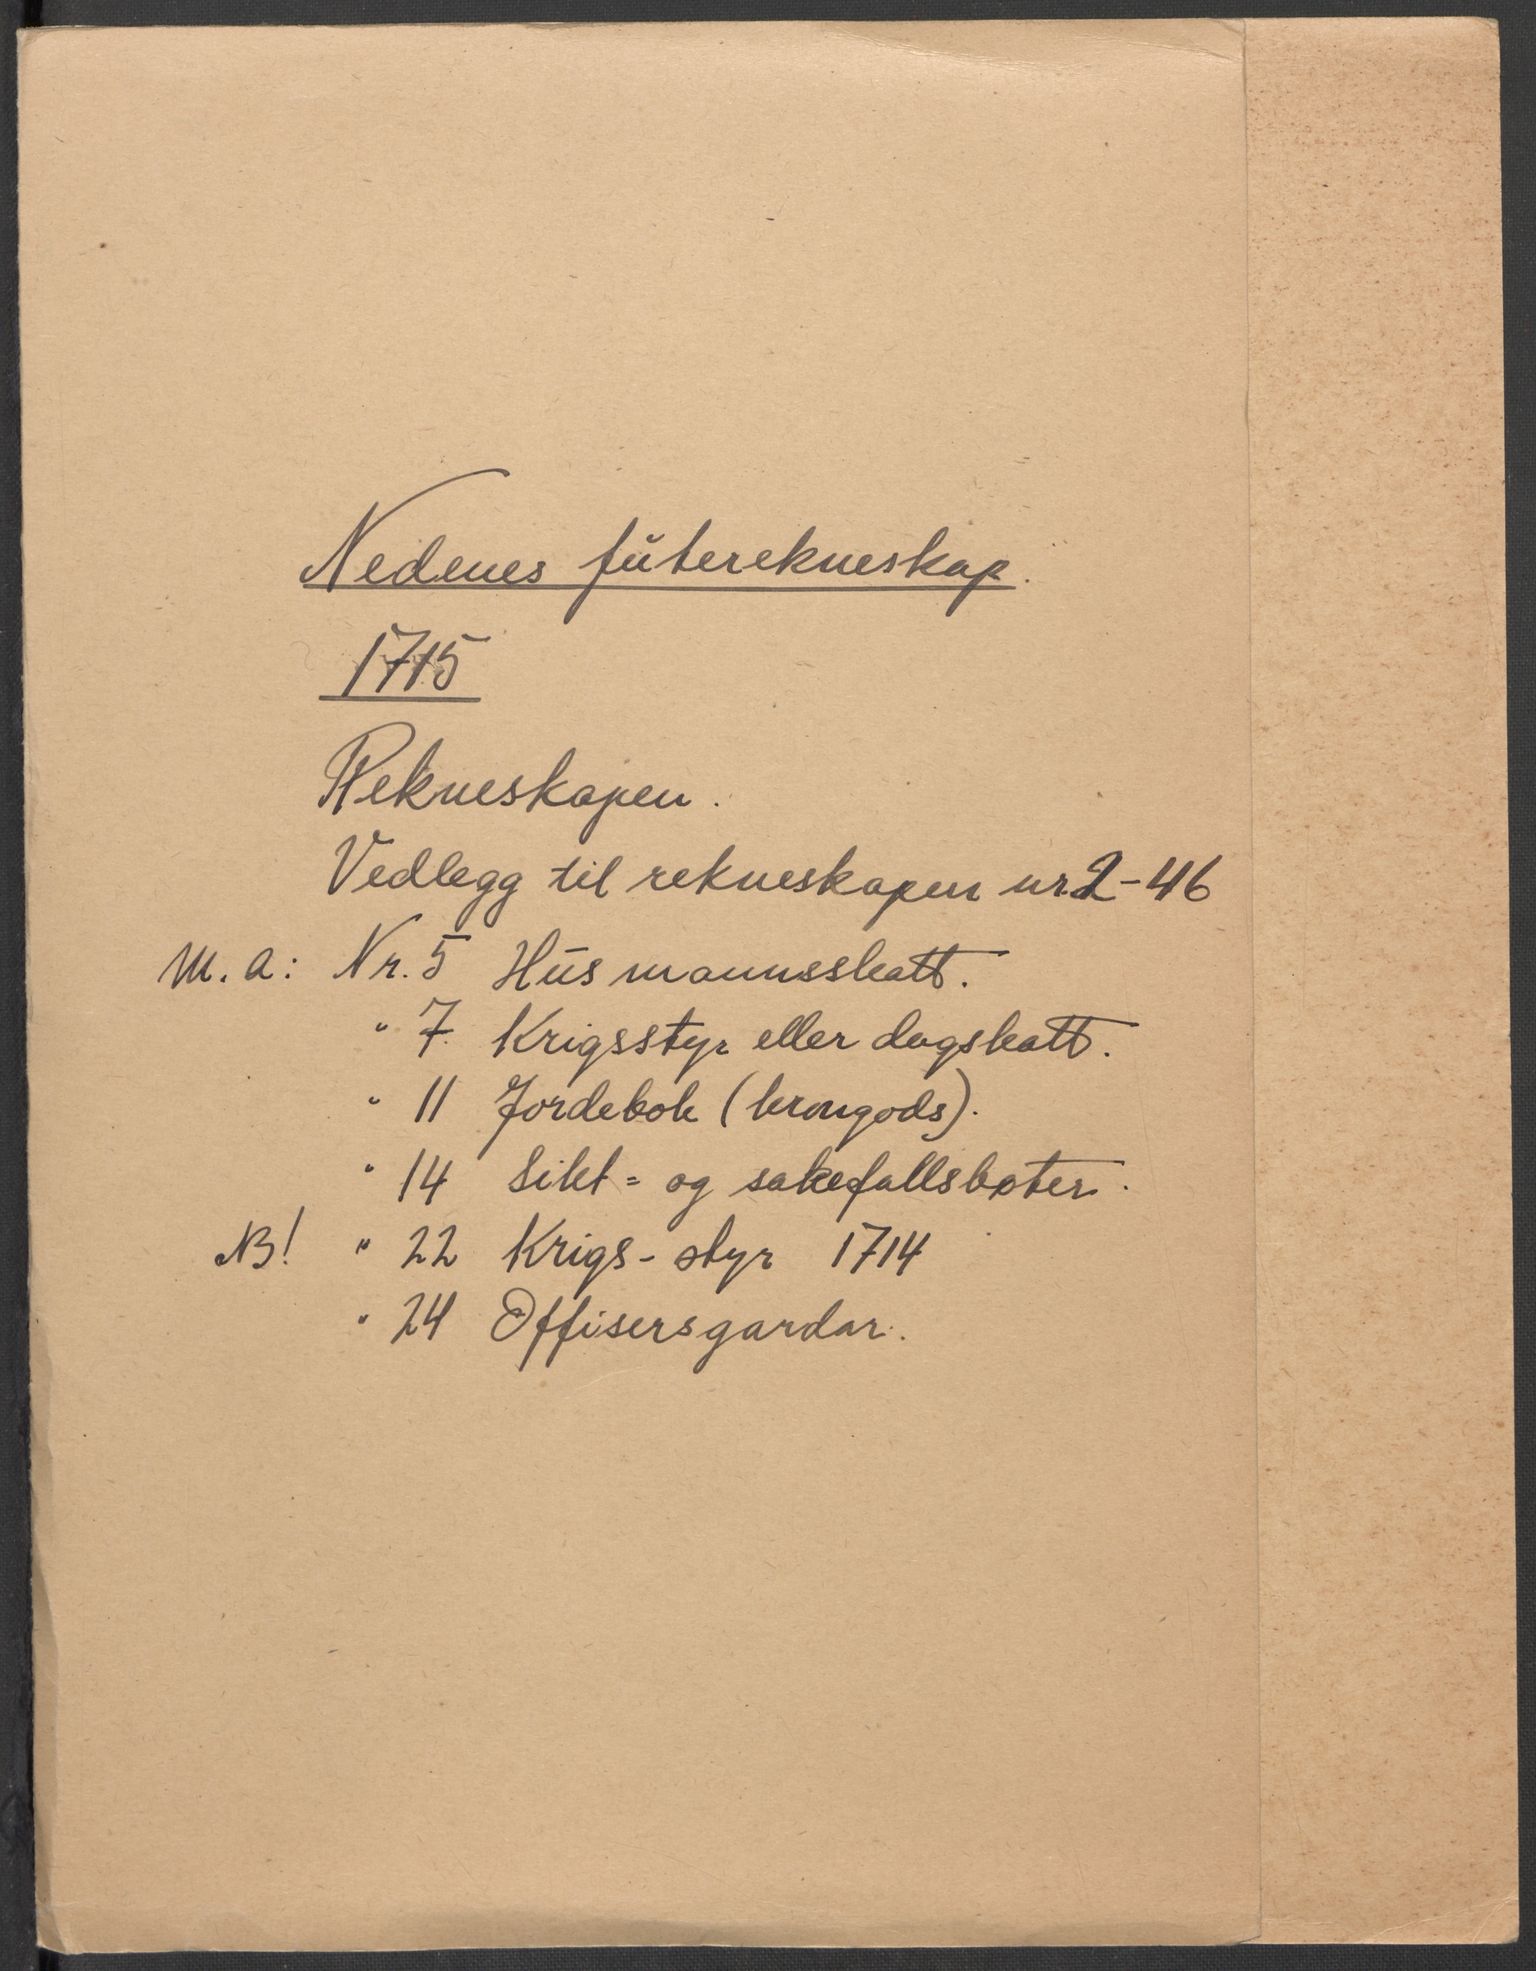 Nedenes futerekneskap.
1715
Rekneskapen.
Vedlegg til rekneskapen nr. 2-46
M.a: Nr. 5 Husmannsskatt.
" 7. Krigsstyr eller dagskatt.
" 11 Jordebok (krongods).
" 14 Sikt= og sakefallsbøter.
NB! " 22 Krigs-styr 1714
" 24 Offisersgardar.